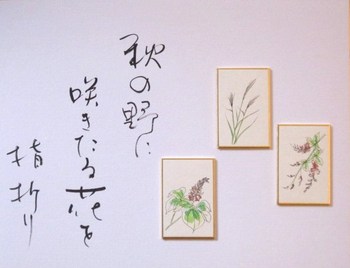 秋の野に
咲きたる花を
指折り